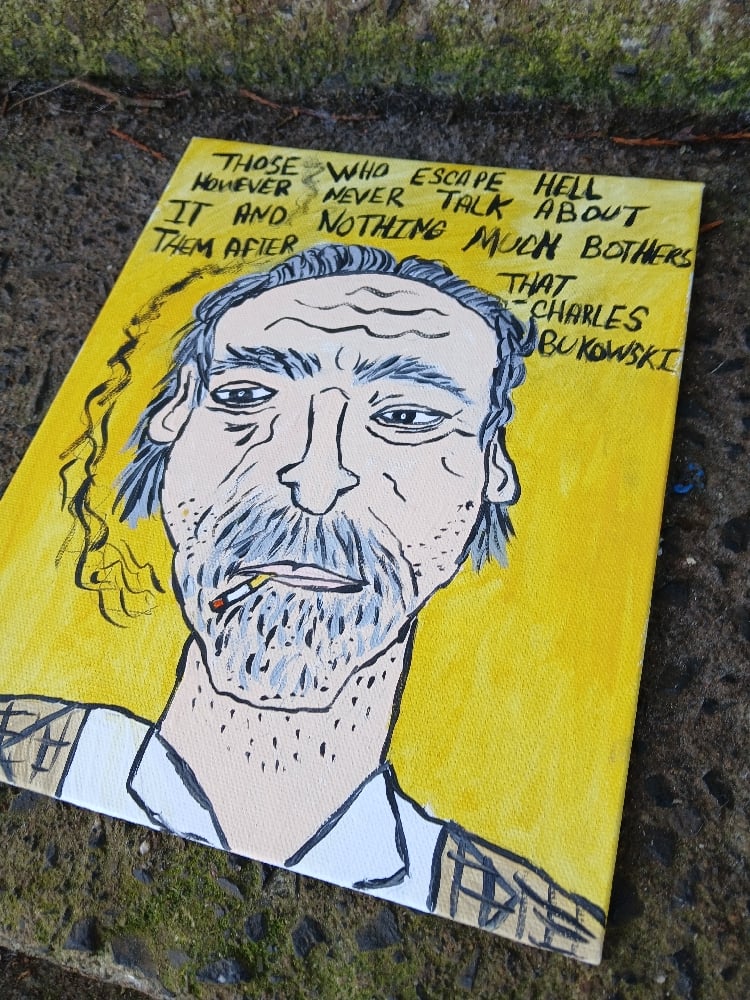 THOSE WHO ESCAPE HELL
HOWEVER NEVER TALK ABOUT
IT AND NOTHING MUCH BOTHERS
THEM AFTER THAT
-CHARLES
BUKOWSKI